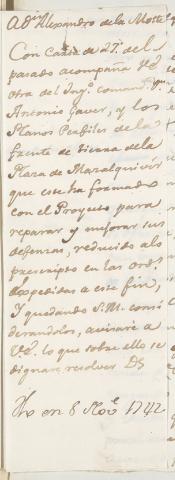 A Dⁿ Alexandro de la Motte
Con Carta de 27. del
pasado acompaña Vẽ
otra del Ingº. comandte. Dn.
Antonio Gaver, y los
Planos Perfiles de la
frente de tierra de la
Plaza de Mazalquivir
que este ha formado
con el Proyecto para
reparar y mejorar sus
defensas, reducido a lo
prescripto en las ords.
expedidas a este fin,
Y quedando S.M. consi
derandolos, avisare a
Vẽ. lo que sobre ello se
dignare resolver Ds
en 8 Nove. 1742